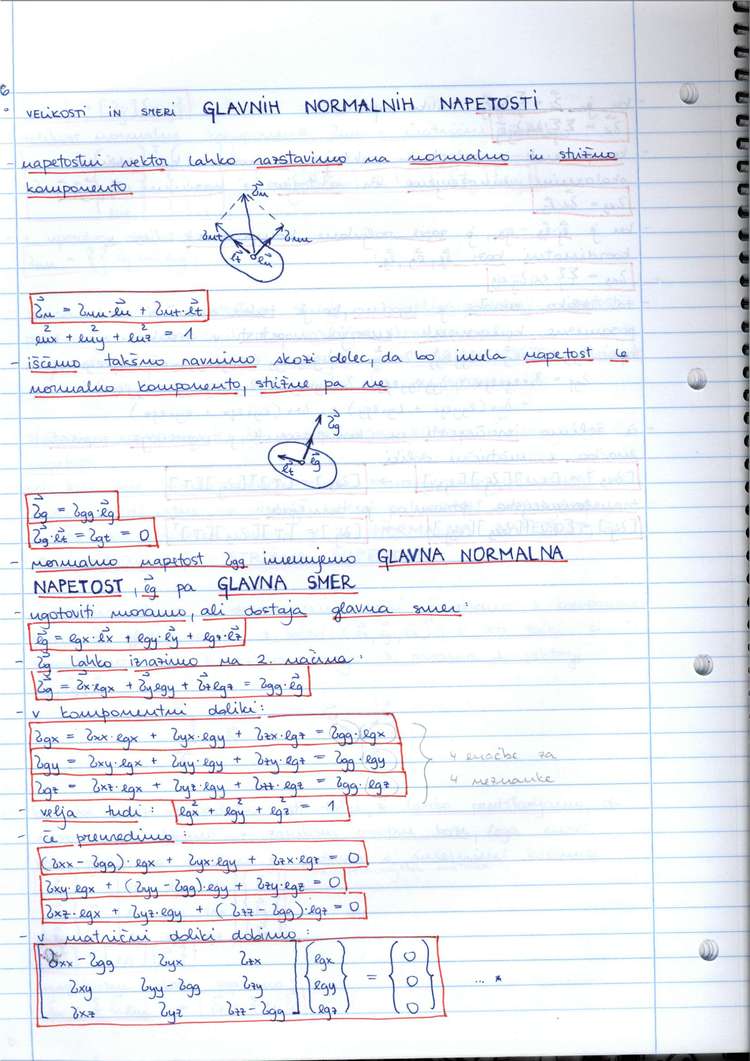 VELIKOSTI IN SMERI GLAVNIH NORMALNIH NAPETOSTI
- napetostni vektor lahko razstavimo na normalno in strižno
komponento
σ⃗n
σnt σnn
e⃗t e⃗n
σ⃗n = σnn·e⃗n + σnt·e⃗t
enx² + eny² + enz² = 1
- iščemo takšno ravnino skozi delec, da bo imela napetost le
normalno komponento, strižne pa ne
σ⃗g
e⃗t e⃗g
σ⃗g = σgg·e⃗g
σ⃗g·e⃗t = σgt = 0
- normalno napetost σgg imenujemo GLAVNA NORMALNA
NAPETOST, e⃗g pa GLAVNA SMER
- ugotoviti moramo, ali dostaja glavna smer:
e⃗g = egx·e⃗x + egy·e⃗y + egz·e⃗z
- σ⃗g lahko izrazimo na 2. načina:
σ⃗g = σ⃗x egx + σ⃗y egy + σ⃗z egz = σgg·e⃗g
- v komponentni obliki:
σgx = σxx·egx + σyx·egy + σzx·egz = σgg·egx
σgy = σxy·egx + σyy·egy + σzy·egz = σgg·egy
σgz = σxz·egx + σyz·egy + σzz·egz = σgg·egz
4 enačbe za
4 neznanke
- velja tudi: egx² + egy² + egz² = 1
- če preuredimo:
(σxx - σgg)·egx + σyx·egy + σzx·egz = 0
σxy·egx + (σyy - σgg)·egy + σzy·egz = 0
σxz·egx + σyz·egy + (σzz - σgg)·egz = 0
- v matrični obliki dobimo:
[σxx - σgg σyx σzx] {egx} {0}
[σxy σyy - σgg σzy] {egy} = {0} ... *
[σxz σyz σzz - σgg] {egz} {0}